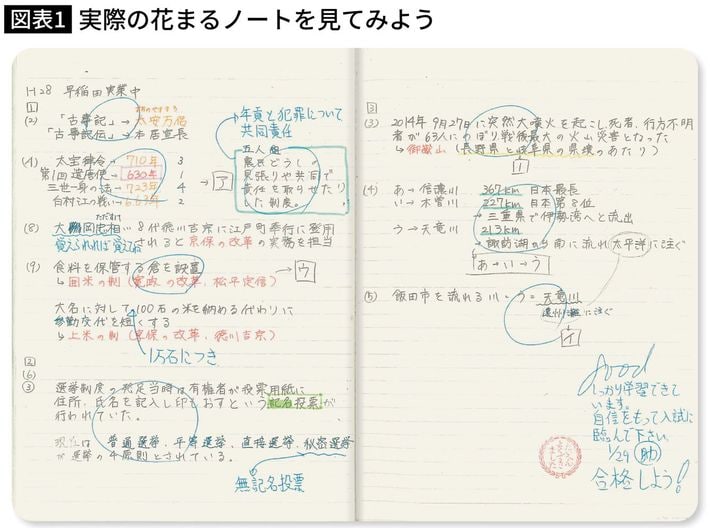 図表1 実際の花まるノートを見てみよう
H28 早稲田実業中
1
(2) 「古事記」→ 太安万侶
「古事記伝」→ 本居宣長
年貢と犯罪について
共同責任
(4) 大宝律令→ 710年 3
第1回遣唐使→ 630年 1
三世一身の法→ 723年 4
白村江の戦い→ 663年 2
→ ア
五人組
農民どうしの
見張りや共同で
責任を取らせたり
した制度。
(8) 大岡忠相…8代徳川吉宗に江戸町奉行に登用
ただすけ
覚えられれば覚えてね
されると享保の改革の実務を担当
(9) 食料を保管する倉を設置
→ ウ
→囲米の制(寛政の改革、松平定信)
大名に対して100石の米を納める代わりに
参勤交代を短くする
→上米の制(享保の改革、徳川吉宗)
1万石につき
2
(6)
③ 選挙制度の発足当時は有権者が投票用紙に
住所、氏名を記入し印をおすという記名投票が
行われていた。
現在は 普通選挙、平等選挙、直接選挙、秘密選挙
が選挙の4原則とされている。
無記名投票
3
(3) 2014年9月27日に突然大噴火を起こし死者、行方不明
者が63人にのぼり戦後最大の火山災害となった
→御嶽山(長野県と岐阜県の県境のあたり)
イ
(4) あ→信濃川 367km 日本最長
い→木曽川 227km 日本第8位
→三重県で伊勢湾へと流出
う→天竜川 213km
→諏訪湖から南に流れ太平洋に注ぐ
あ→い→う
⑤ 飯田市を流れる川…う=天竜川
遠州灘に注ぐ
イ
good
しっかり学習できて
います。
自信をもって入試に
臨んで下さい。
1/29 助
合格しよう!